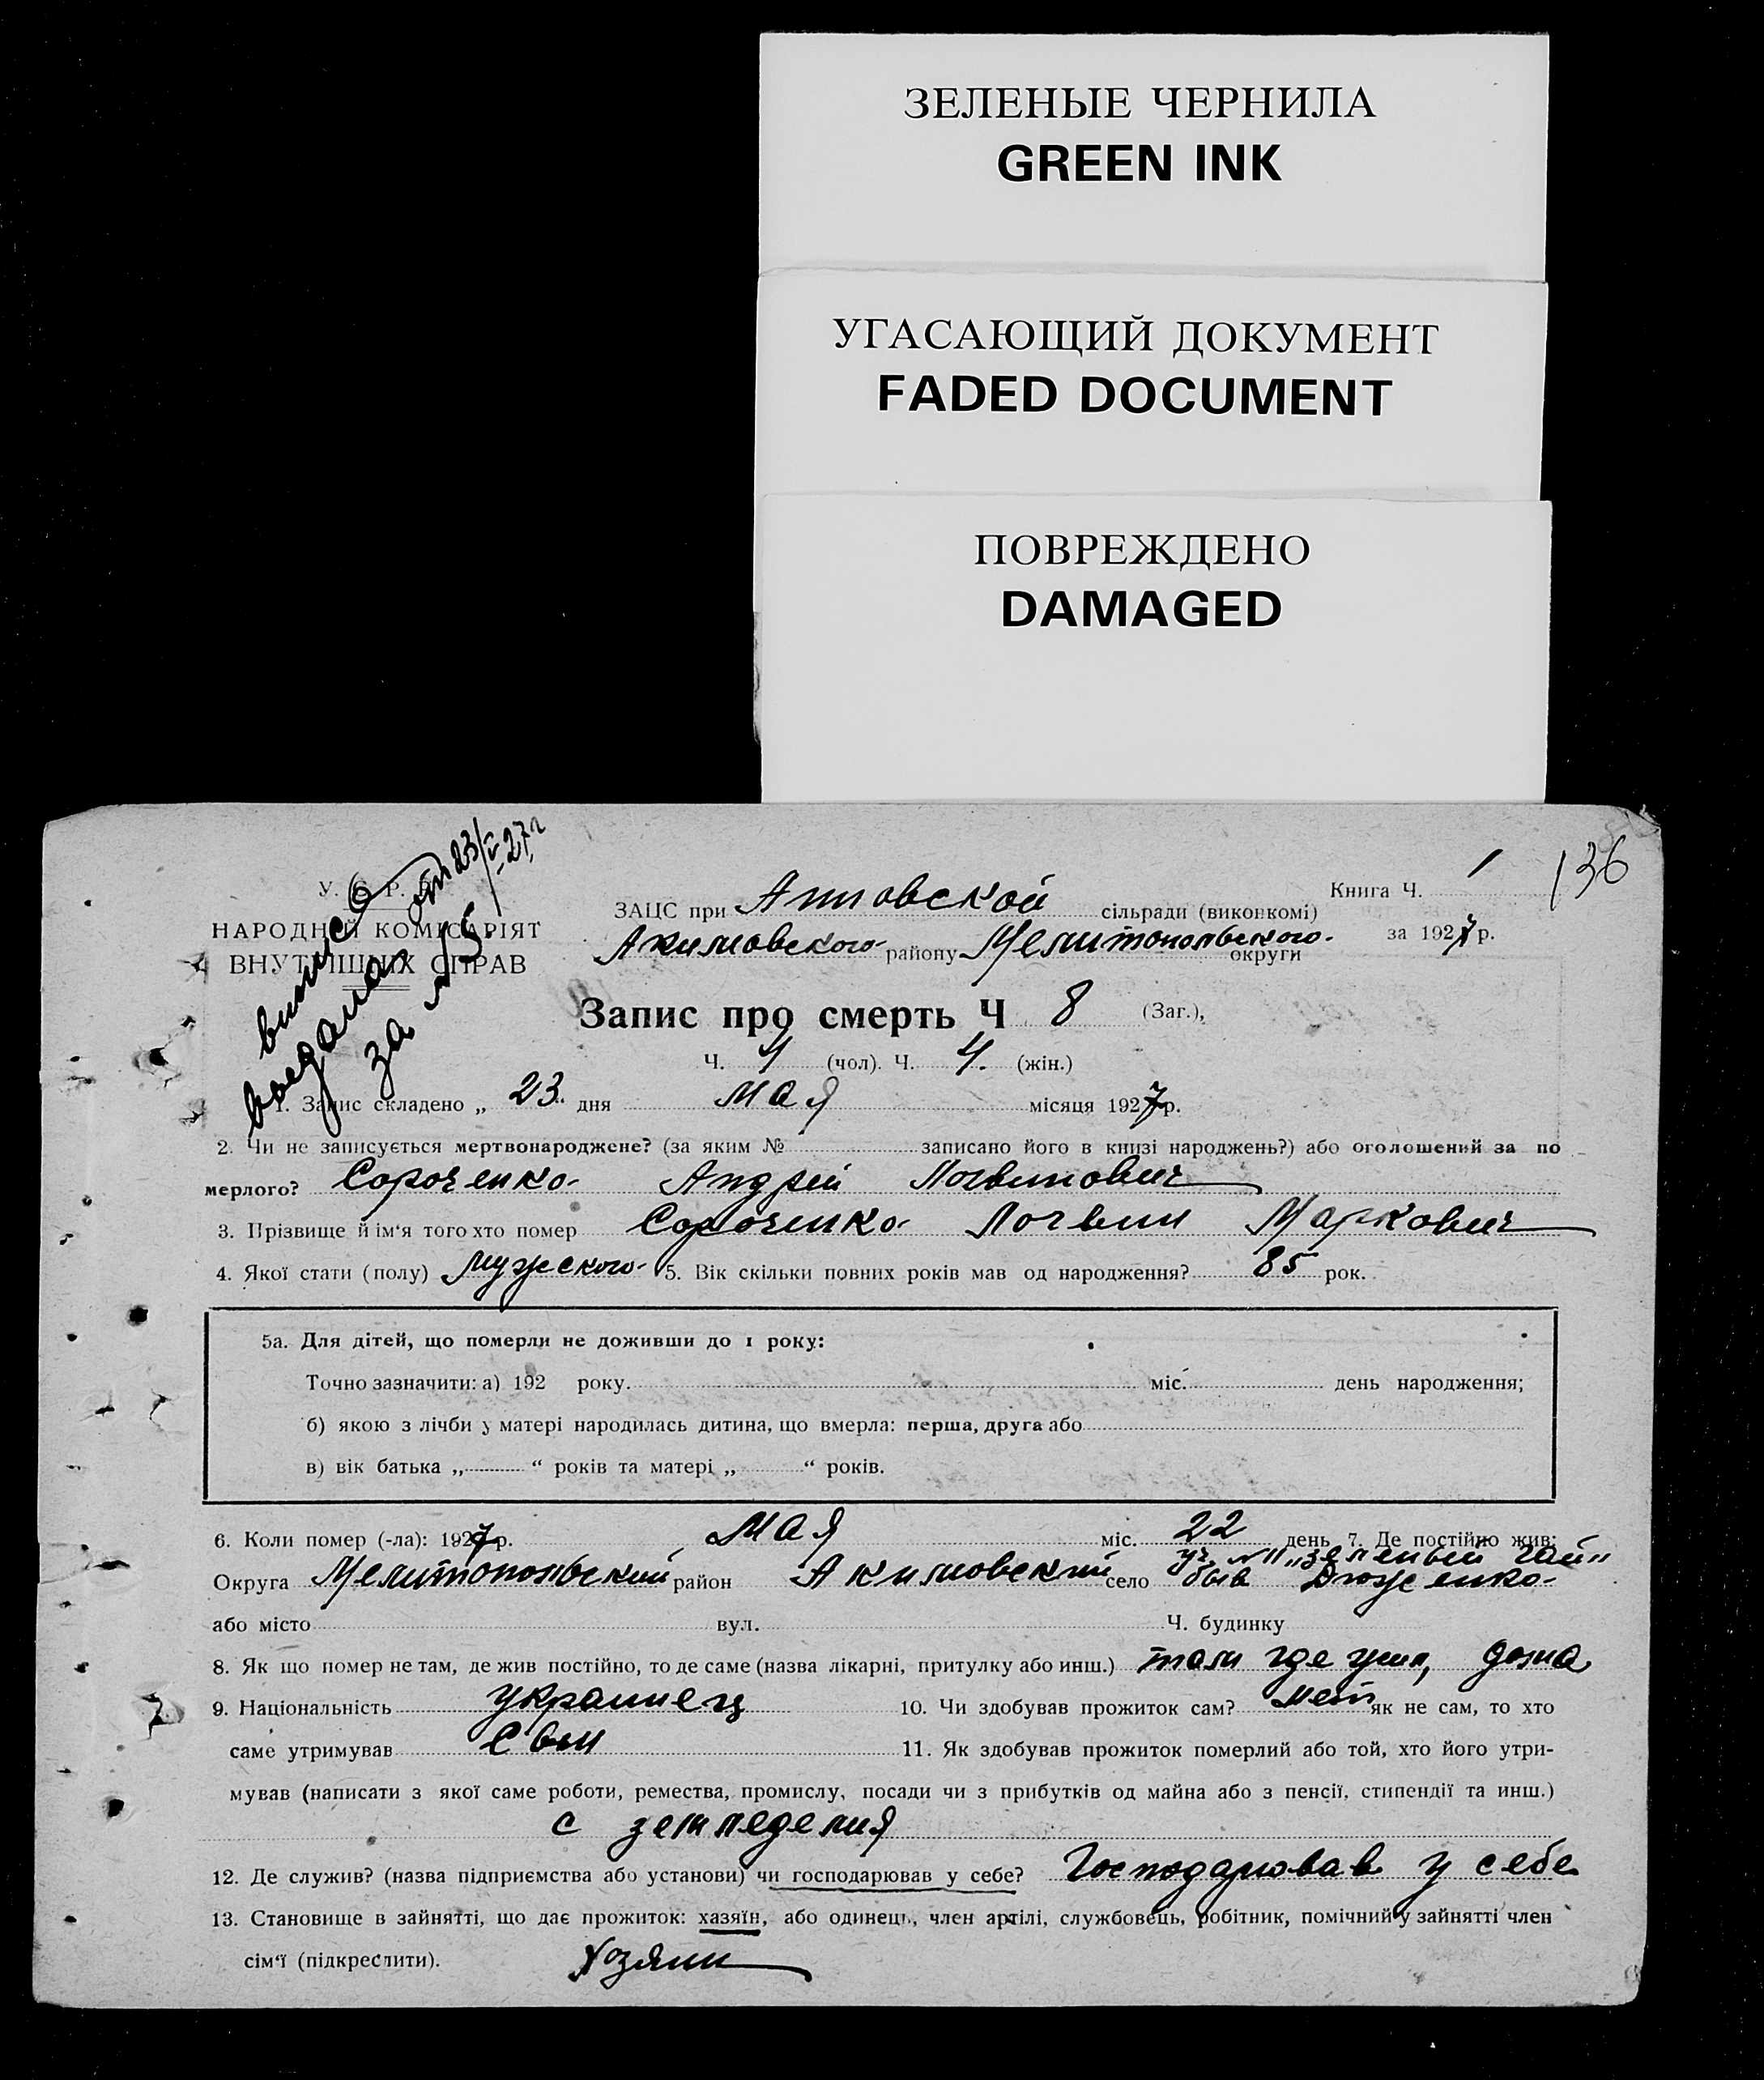 ЗЕЛЕНЫЕ ЧЕРНИЛА
GREEN INK
УГАСАЮЩИЙ ДОКУМЕНТ
FADED DOCUMENT
ПОВРЕЖДЕНО
DAMAGED
136
У. С. Р. Р.
НАРОДНІЙ КОМІСАРІЯТ
ВНУТРІШНІХ СПРАВ
за №5 от 23/V-27 г
Книга Ч. 1
ЗАЦС при сільради (виконкомі)
Акимовского району Мелитопольского округи за 1927 р.
Запис про смерть Ч 8 (Заг.),
Ч. 4 (чол). Ч. 4. (жін.)
1. Запис складено „ 23 “ дня мая місяця 1927 р.
2. Чи не записується мертвонароджене? (за яким № записано його в книзі народжень?) або оголошений за по
мерлого? Сороченко Андрей Логвинович
3. Прізвище й ім'я того хто помер Сороченко Логвин Маркович
4. Якої стати (полу) мужского 5. Вік скільки повних років мав од народження? 85 рок.
5а. Для дітей, що померли не доживши до 1 року:
Точно зазначити: а) 192 року. міс. день народження;
б) якою з лічби у матері народилась дитина, що вмерла: перша, друга або
в) вік батька „ “ років та матері „ “ років.
6. Коли помер (-ла): 1927 р. мая міс. 22 день 7. Де постійно жив:
уч. №11 „зеленый гай“
Округа Мелитопольский район Акимовский село быв Дюженко
або місто вул. Ч. будинку
8. Як що помер не там, де жив постійно, то де саме (назва лікарні, притулку або инш.) там где жил, дома
9. Національність украинец 10. Чи здобував прожиток сам? нет як не сам, то хто
саме утримував Сын 11. Як здобував прожиток померлий або той, хто його утри-
мував (написати з якої саме роботи, ремества, промислу, посади чи з прибутків од майна або з пенсії, стипендії та инш.)
с земледелия
12. Де служив? (назва підприємства або установи) чи господарював у себе? Господарював у себе
13. Становище в зайнятті, що дає прожиток: хазяїн, або одинець, член артілі, службовець, робітник, помічний у зайнятті член
сім'ї (підкреслити). Хозяин